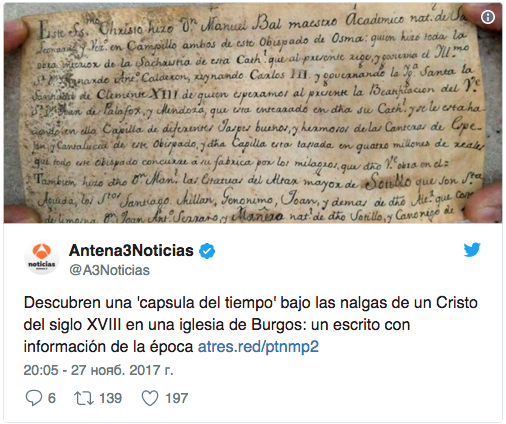 Este Sto. Christo hizo Dn. Manuel Bal maestro Academico nat. de Sn.
Leonardo, y Vez. en Campillo ambos de este Obispado de Osma: quien hizo toda la
obra interior de la Sachristia de esta Cath.l que al presente rige, y govierna el Illmo.
Bernardo Anto. Calderon, reynando Carlos III. y governando la Igª. Santa la
Santidad de Clemente XIII de quien esperamos al presente la Beatificacion del Ve.
Juan de Palafox, y Mendoza, que esta enterrado en dha su Cath.l y se le esta ha
ciendo en ella Capilla de diferentes Jaspes buenos, y hermosos de las Canteras de Espe
jon y Cantalucia de este Obispado, y dha Capilla esta tasada en quatro millones de reales
que todo este Obispado concurre a su fabrica por los milagros, que dho Ve. obra en el=
Tambien hizo dho Dn. Manl. las Estatuas del Altar mayor de Sotillo que son Sta.
Agueda, los Stos. Santiago, Millan, Geronimo, Joan, y demas de dho
de limosna Dn. Joan Anto. y nat.l de dho Sotillo, y Canonigo de
noticias
Antena3Noticias
@A3Noticias
Descubren una 'capsula del tiempo' bajo las nalgas de un Cristo
del siglo XVIII en una iglesia de Burgos: un escrito con
información de la época atres.red/ptnmp2
20:05 - 27 нояб. 2017 г.
6 139 197